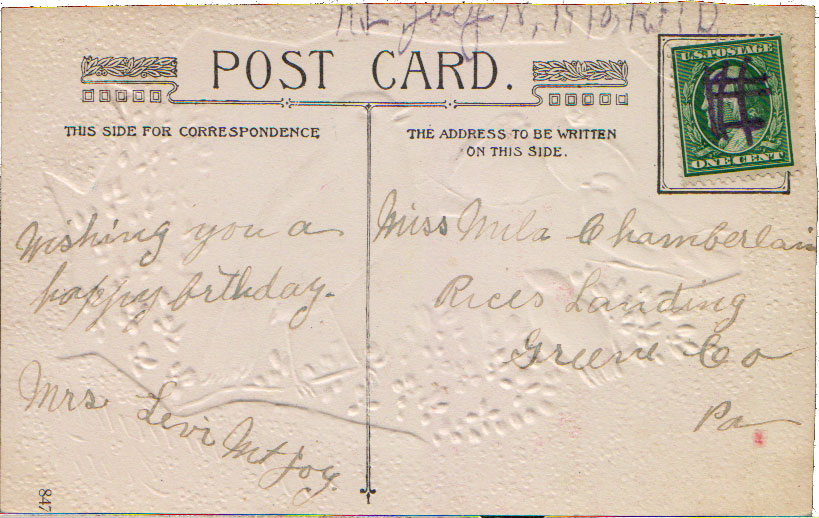 July 18, 1910, R.F.D
POST CARD.
U.S. POSTAGE
ONE CENT
THIS SIDE FOR CORRESPONDENCE
THE ADDRESS TO BE WRITTEN
ON THIS SIDE.
Wishing you a
happy birthday.
Mrs Levi Mt Joy.
Miss Mila Chamberlain
Rices Landing
Greene Co
Pa
847